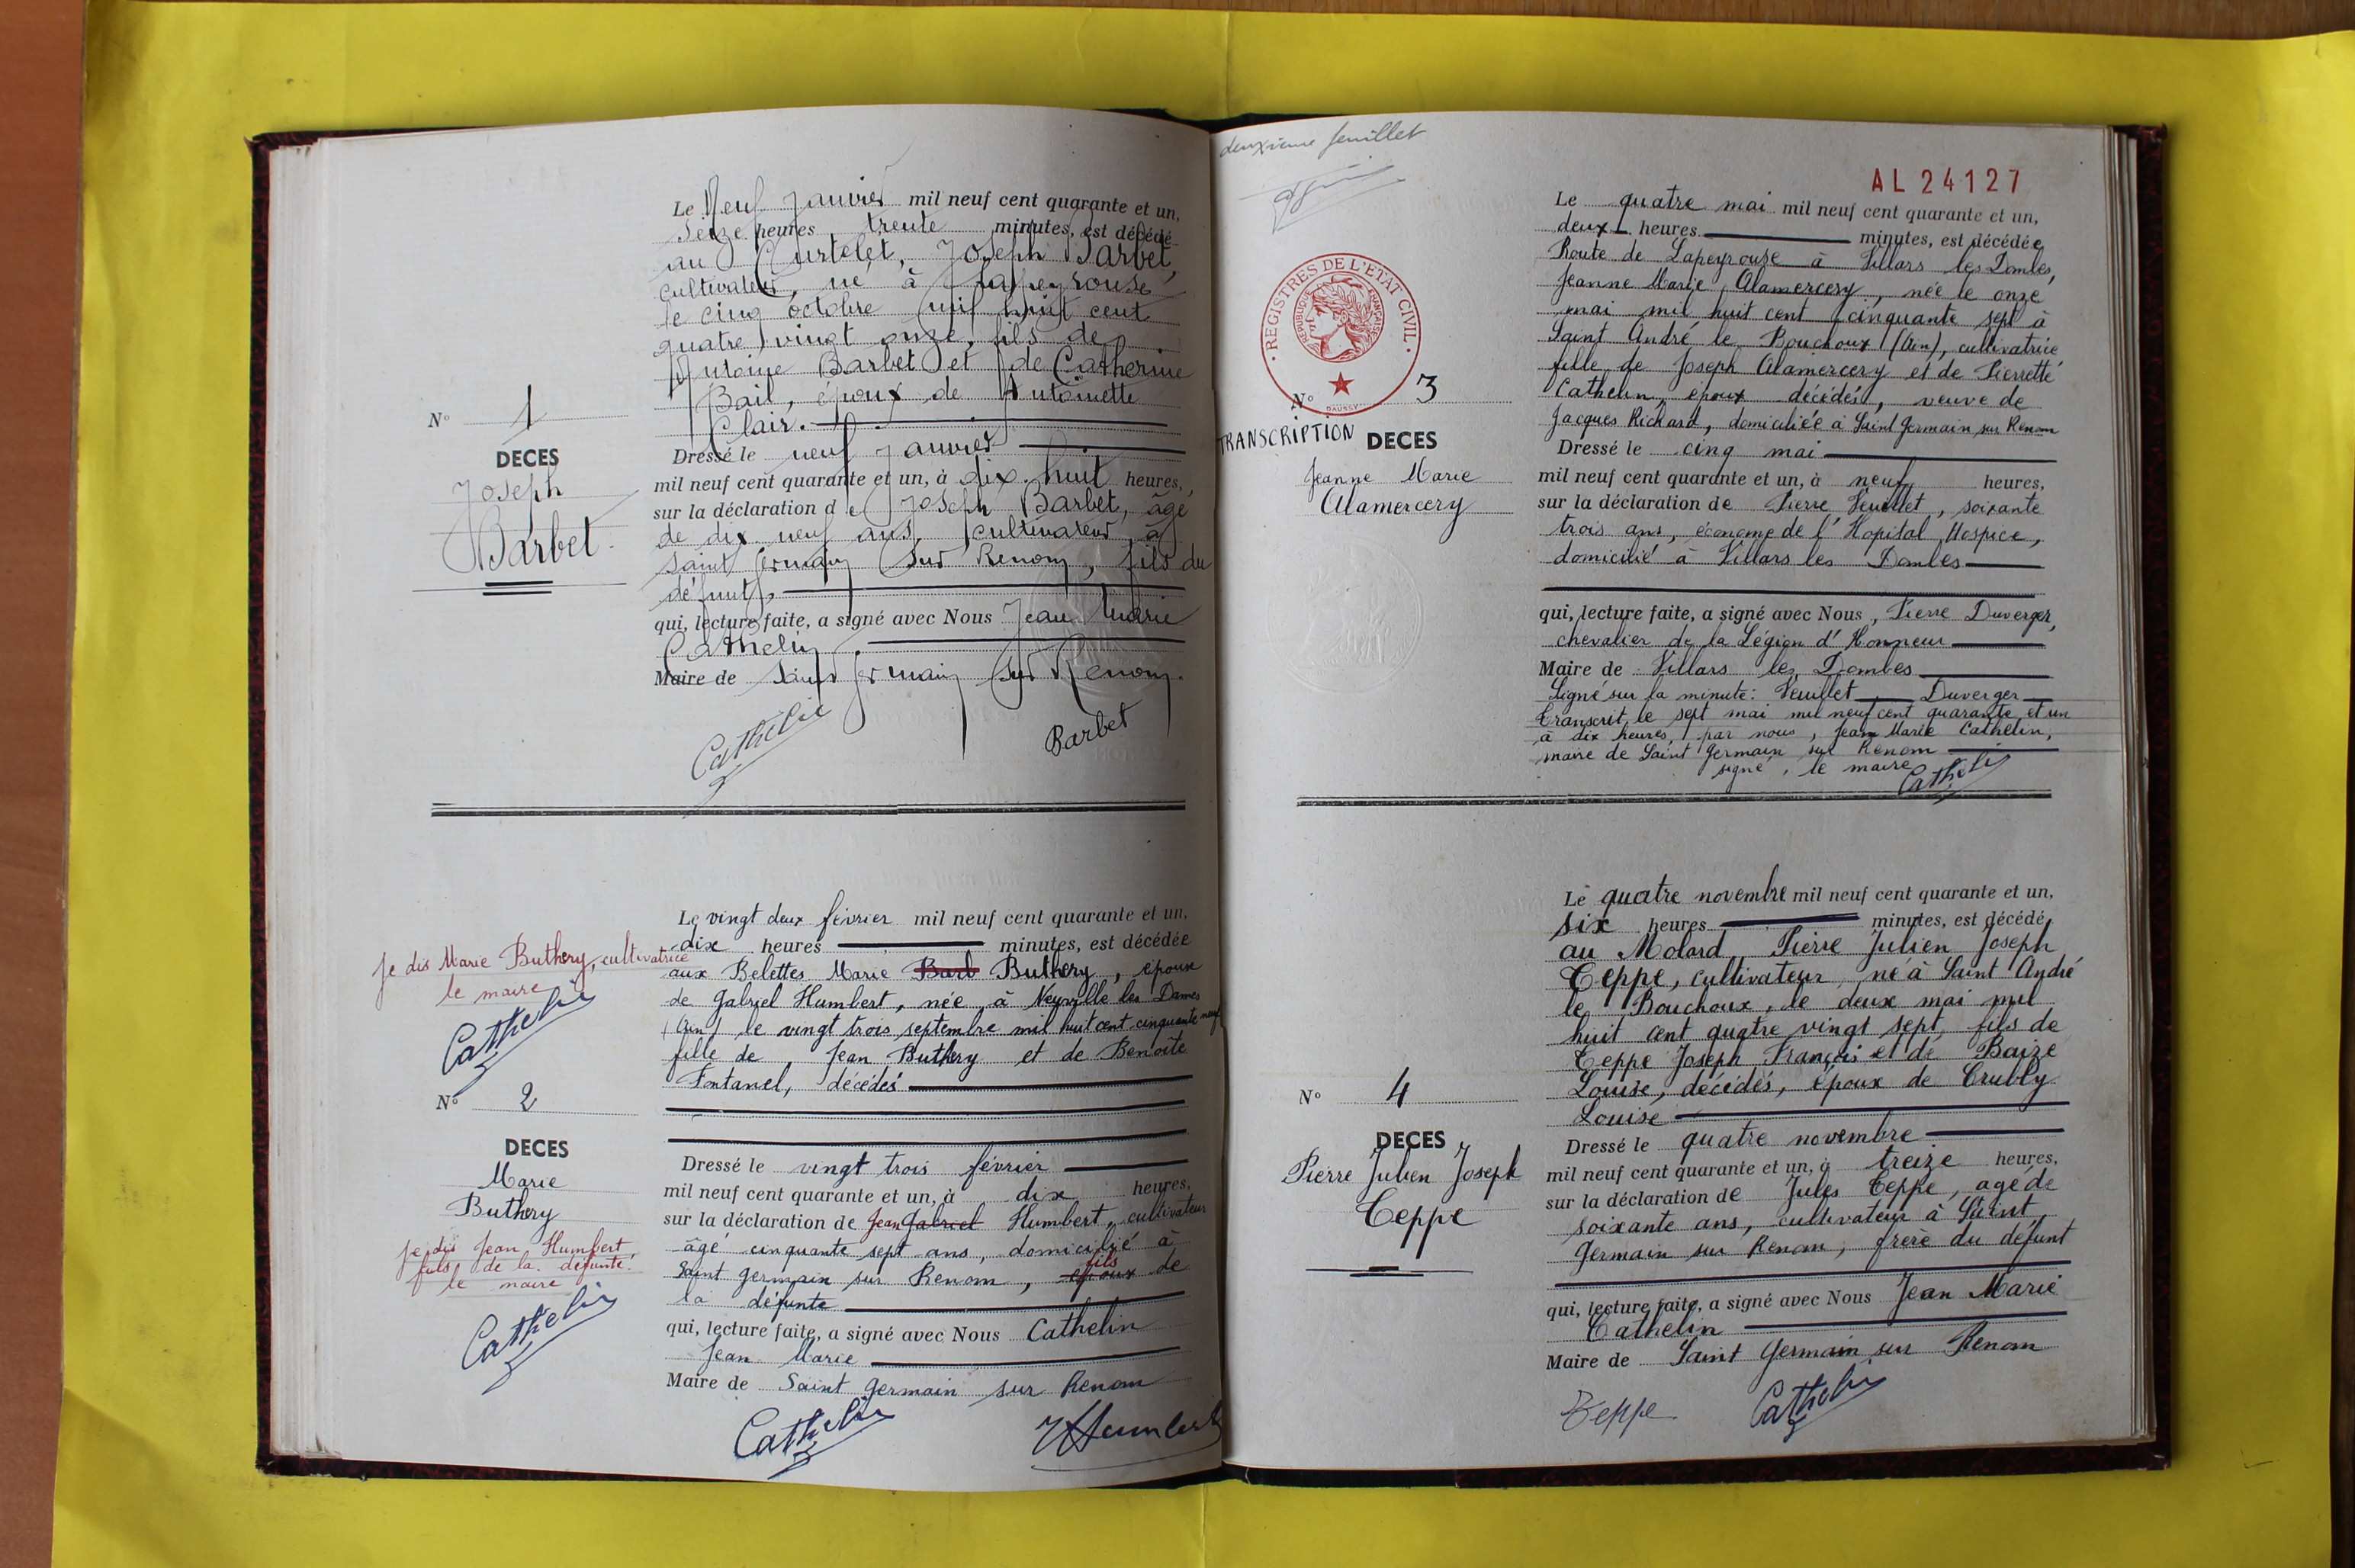 Le Neuf Janvier mil neuf cent quarante et un,
Seize heures trente minutes, est décédé
au Curtelet, Joseph Barbet,
cultivateur, né à Lapeyrouse
le cinq octobre mil huit cent
quatre vingt onze, fils de
Antoine Barbet et de Catherine
Bail, époux de Antoinette
Clair.
N° 1
DECES
Joseph
Barbet
Dressé le neuf Janvier
mil neuf cent quarante et un, à dix huit heures,
sur la déclaration de Joseph Barbet, âgé
de dix neuf ans, cultivateur à
Saint Germain sur Renom, fils du
défunt,
qui, lecture faite, a signé avec Nous Jean Marie
Cathelin
Maire de Saint Germain sur Renom.
Cathelin
Barbet
Le vingt deux février mil neuf cent quarante et un,
dix heures minutes, est décédée
aux Belettes Marie Barb Buthery, épouse
de Gabriel Humbert, née à Neuville les Dames
(Ain) le vingt trois septembre mil huit cent cinquante neuf
fille de Jean Buthery et de Benoîte
Fontanel, décédés
Je dis Marie Buthery, cultivatrice
le maire
Cathelin
N° 2
DECES
Marie
Buthery
Je dis Jean Humbert,
fils de la défunte.
le maire
Cathelin
Dressé le vingt trois février
mil neuf cent quarante et un, à dix heures,
sur la déclaration de Jean Gabriel Humbert, cultivateur
âgé cinquante sept ans, domicilié à
Saint Germain sur Renom, époux fils de
la défunte
qui, lecture faite, a signé avec Nous Cathelin
Jean Marie
Maire de Saint Germain sur Renom
Cathelin
Humbert
deuxième feuillet
AL 24127
REGISTRES DE L'ETAT CIVIL
REPUBLIQUE FRANÇAISE
DAUSSY
Le quatre mai mil neuf cent quarante et un,
deux heures minutes, est décédée
Route de Lapeyrouse à Villars les Dombes,
Jeanne Marie Alamercery, née le onze
mai mil huit cent cinquante sept à
Saint André le Bouchoux (Ain), cultivatrice
fille de Joseph Alamercery et de Pierrette
Cathelin, époux décédés, veuve de
Jacques Richard, domiciliée à Saint Germain sur Renom
N° 3
TRANSCRIPTION
DECES
Jeanne Marie
Alamercery
Dressé le cinq mai
mil neuf cent quarante et un, à neuf heures,
sur la déclaration de Pierre Veuillet, soixante
trois ans, économe de l'Hopital Hospice,
domicilié à Villars les Dombes
qui, lecture faite, a signé avec Nous, Pierre Duverger,
chevalier de la Légion d'Honneur
Maire de Villars les Dombes
Signé sur la minute: Veuillet Duverger
Transcrit le sept mai mil neuf cent quarante et un
à dix heures, par nous, Jean Marie Cathelin,
maire de Saint Germain sur Renom
signé, le maire Cathelin
Le quatre novembre mil neuf cent quarante et un,
six heures minutes, est décédé
au Molard Pierre Julien Joseph
Teppe, cultivateur, né à Saint André
le Bouchoux, le deux mai mil
huit cent quatre vingt sept, fils de
Teppe Joseph François et de Baize
Louise, décédés, époux de Trubly
Louise
N° 4
DECES
Pierre Julien Joseph
Teppe
Dressé le quatre novembre
mil neuf cent quarante et un, à treize heures,
sur la déclaration de Jules Teppe, agé de
soixante ans, cultivateur à Saint
Germain sur Renom, frère du défunt
qui, lecture faite, a signé avec Nous Jean Marie
Cathelin
Maire de Saint Germain sur Renom
Teppe Cathelin